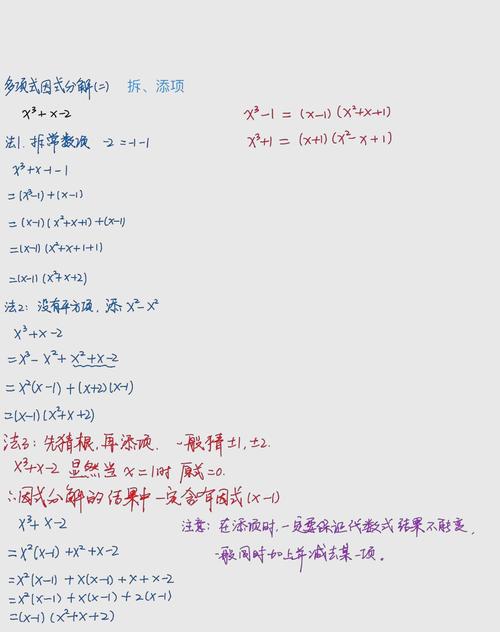 多项式因式分解(二) 拆、添项
x³+x-2
x³-1 = (x-1)(x²+x+1)
x³+1 = (x+1)(x²-x+1)
法1. 拆常数项 -2=-1-1
x³+x-1-1
=(x³-1)+(x-1)
=(x-1)(x²+x+1)+(x-1)
=(x-1)(x²+x+1+1)
=(x-1)(x²+x+2)
法2: 没有平方项, 添 x²-x²
x³+x-2
=x³-x²+x²+x-2
=x²(x-1)+(x+2)(x-1)
=(x-1)(x²+x+2)
法3: 先猜根,再添项. 一般猜±1,±2.
x³+x-2 显然当 x=1时 原式=0.
∴因式分解的结果中一定含有因式(x-1)
x³+x-2
=x²(x-1)+x²+x-2
=x²(x-1)+x(x-1)+x+x-2
=x²(x-1)+x(x-1)+2(x-1)
=(x-1)(x²+x+2)
注意: 在添项时,一定要保证代数式结果不能变,
一般同时加上并减去某一项。